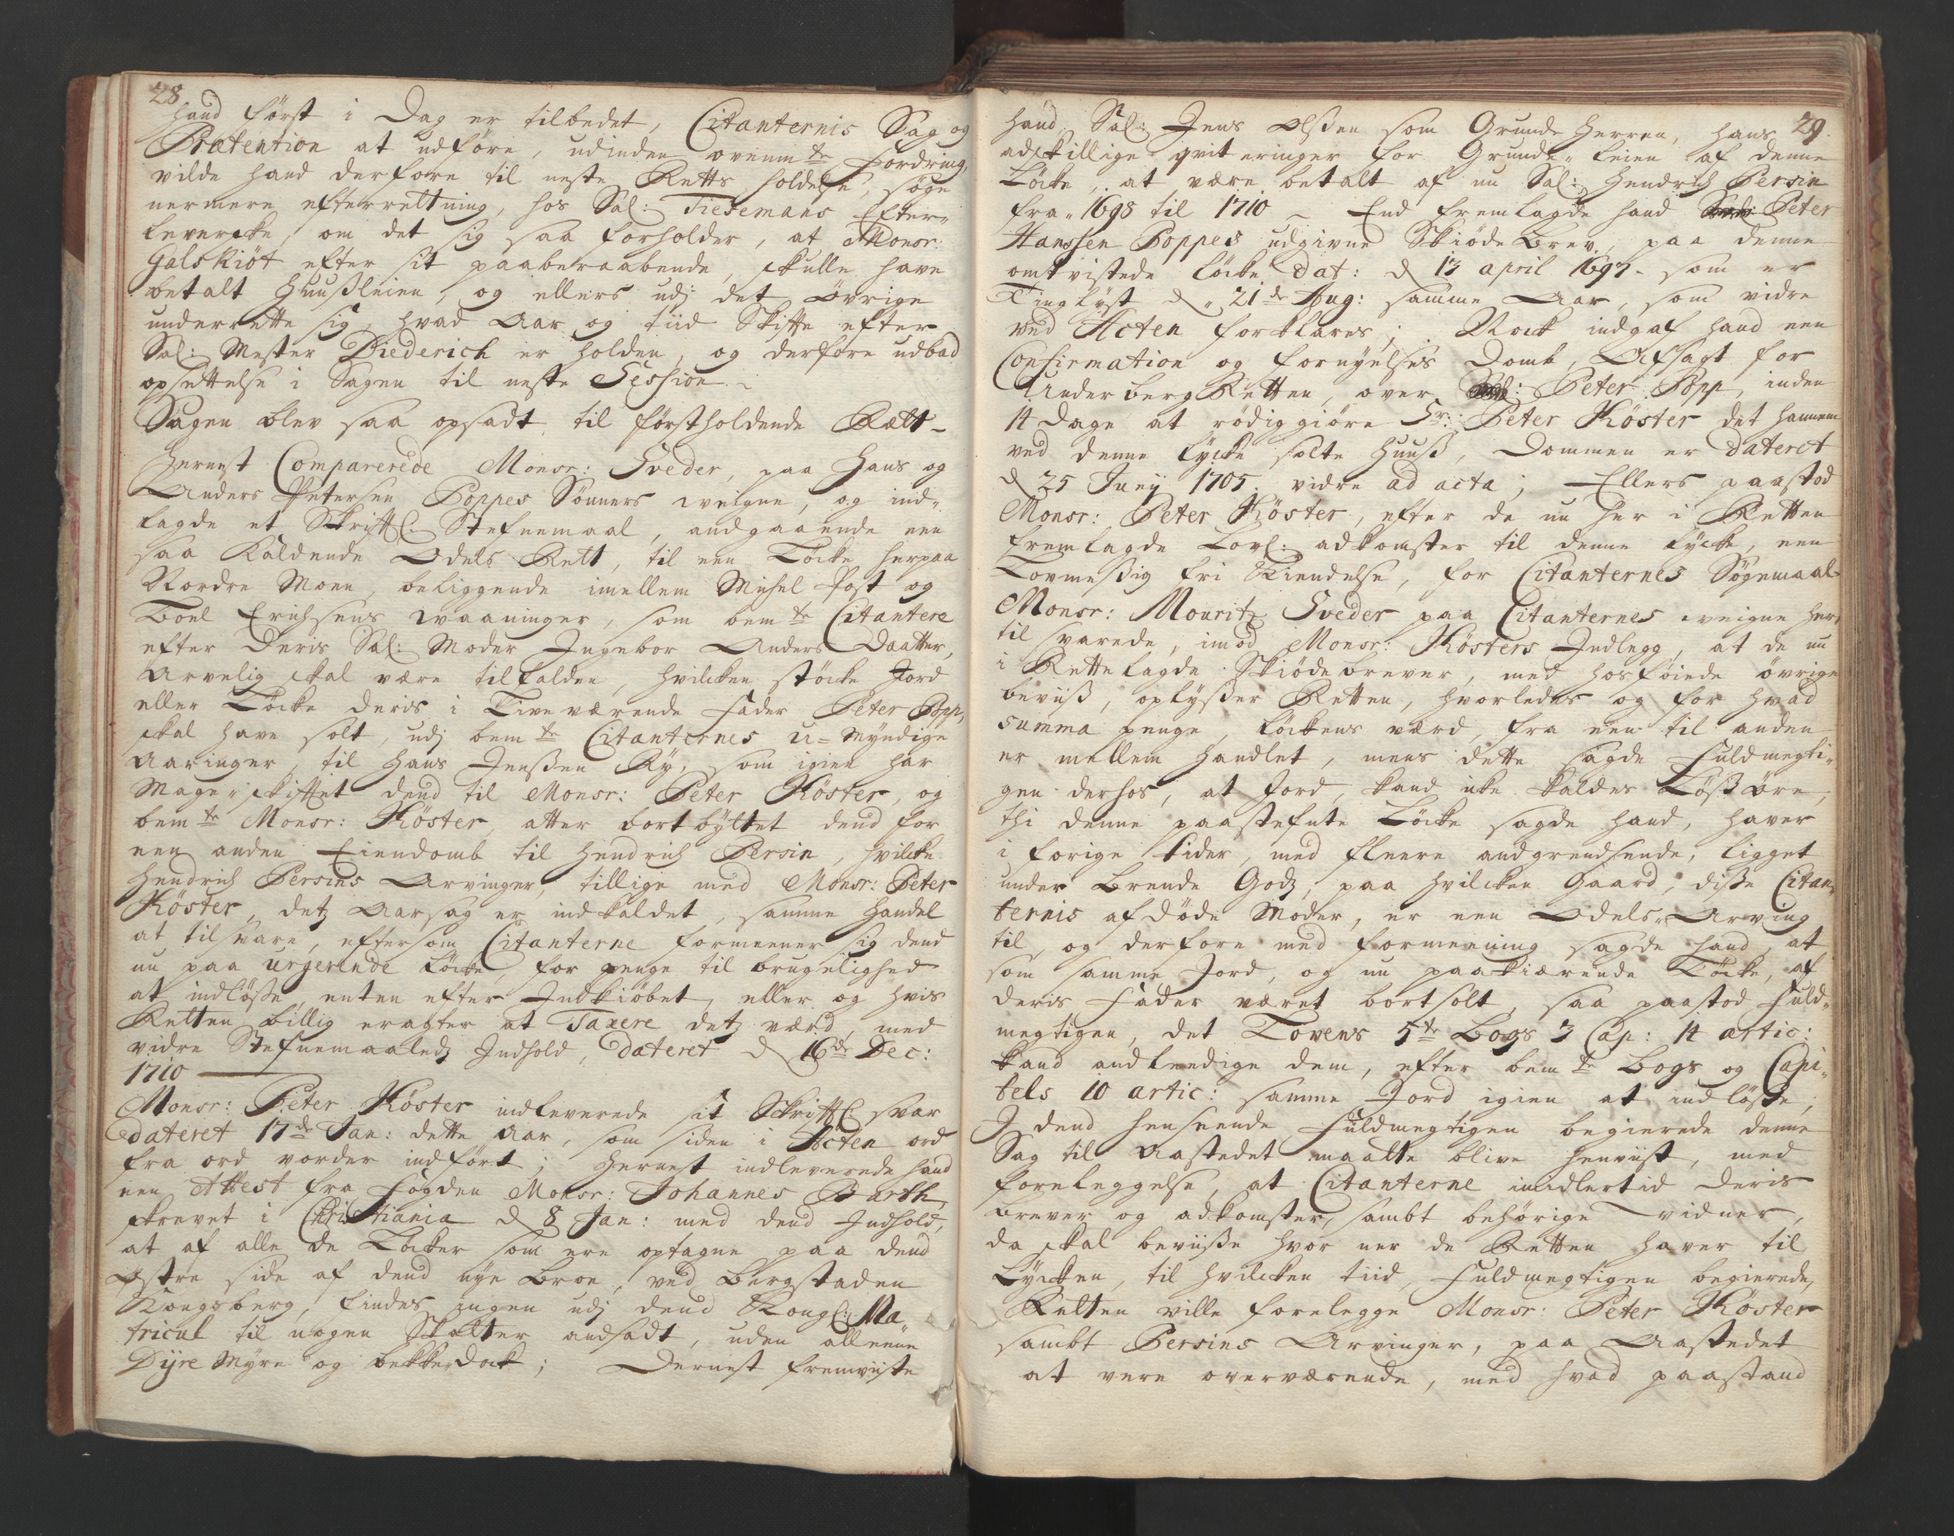 28
hand først i Dag er tilbedet, Citanternis Sag og
Prætention at udføre, ududen ovenmte Fordring,
vilde hand derfore til neste Retts holdelse, søge
nermere efterrettning, hos Sal: Tiesemans Efter=
leverske, om det sig saa forholder, at Monsr:
Galskiøt efter sit paaberaabende, skulle have
betalt Huusleien, og ellers udj det øvrige
underrette sig, hvad Aar og tiid Skifte efter
Sal: Mester Diederich er holden, og derfore udbad
opsettelse i Sagen til neste Session.
Sagen blev saa opsadt til førstholdende Rætt.
Hernest Comparerede Monsr: Sveder, paa Hans og
Anders Petersen Poppes Sønners weigne, og ind=
lagde et Skriftl: Stefnemaal, andgaaende een
saa Kaldende Odels Rett, til een Løcke herpaa
Nordre Moen, beliggende imellem Michel Post og
Boel Erichsens Waaninger, som bemte Citantere
efter Deris Sal: Moder Ingebor Anders Daatter,
Arvelig skal være tilfalden, hvilcken støcke Jord
eller Løcke deris i Live værende Fader Peter Popp,
skal have solt, udj bemte Citanternes u=Myndige
Aaringer, til Hans Jenssen Ry, som igien har
Mage=skiftet dend til Monsr: Peter Köster, og
bemte Monsr: Köster, atter bortbyttet dend for
een anden Eiendomb til Hendrich Persin, hvilcke
Hendrich Persins Arvinger, tillige med Monsr: Peter
Köster, detz Aarsag er indkaldet, samme Handel
at tilsvare, eftersom Citanterne formeener sig dend
nu paa urgerende Løcke, for penge til brugelighed
at indløsse, enten efter Indkiøbet, eller og hvis
Retten billig eragter at Taxere detz værd, med
vidre Stefnemaaledz Indhold, dateret d 16de Dec:
1710
Monsr: Peter Köster indleverede sit Skriftl: svar
dateret 17de Jan: dette Aar, som siden i Acten ord
fra ord vorder indført; Hernest indleverede hand
een Attest fra Fogden Monsr: Johannes Barth,
skrevet i Christiania d 8 Jan: med dend Indhold,
at af alle de Løcker som ere optagne paa dend
Østre side af dend nye Broe, ved Bergstaden
Kongsberg, findes ingen udj dend Kongl: Ma=
tricul til nogen Skatter andsadt, uden alleene
Dyre Myre og bekkedock; Dernest fremviiste
29.
hand, Sal: Jens Olssen som Grunde Herren, hans
adskillige qviteringer for Grunde=leien af denne
Løcke, at være betalt af nu Sal: Hendrich Persin
fra 1698 til 1710 – End fremlagde hand Peter
Hanssen Poppes udgivne Skiøde Brev, paa denne
omtvistede Løcke dat: d 13 april 1697. som er
Tinglyst d 21de Aug: samme Aar, som vidre
ved Acten forklares; Nock indgaf hand een
Confirmation og fornyelses Domb, Afsagt for
Underberg Retten, over Peter Popp, inden
14 Dage at rødiggiøre Sr: Peter Köster det hannem
ved denne lycke solte Huus, Dommen er dateret
d 25 Juny 1705. vidre ad acta; Ellers paastod
Monsr: Peter Köster, efter de nu her i Retten
fremlagde Lovl: adkomster til denne lycke, een
Lovmessig fri Kiendelse, for Citanternes Søgemaal.
Monsr: Mouritz Sveder paa Citanternes weigne her
til svarede, imod Monsr: Kösters Indlegg, at de nu
i Rettelagde Skiødebrever, med hosføiede øvrige
beviis, oplysser Retten, hvorledes og for hvad
summa penge, Løckens værd, fra een til anden
er mellem handlet, mens dette sagde Fuldmegti=
gen derhos, at Jord, kand icke kaldes Løssøre,
thi denne paastefnte Løcke sagde hand, haver
i forige tider, med fleere andgrendsende, ligget
under Brende Godz, paa hvilcken Gaard, disse Citan=
ternis afdøde Moder, er een Odels=Arving
til, og derfore med formeening sagde hand, at
som samme Jord, og nu paakiærende Løcke, af
deris Fader været bortsolt, saa paastod Fuld=
megtigen, det Lovens 5te Bogs 3 Cap: 14 artic:
kand andleedige dem, efter bemte Bogs og Capi=
tels 10 artic: samme Jord igien at indløsse;
I dend henseende Fuldmegtigen begierede denne
Sag til Aastedet maatte blive henviist, med
foreleggelse, at Citanterne imidlertid deris
brever og adkomster, sambt behørige vidner,
da skal beviisse hvor ner de Retten haver til
Lycken, til hvilcken tiid, Fuldmegtigen begierede,
Retten ville forelegge Monsr: Peter Köster
sambt Persins Arvinger, paa Aastedet
at vere overværende, med hvad paastand